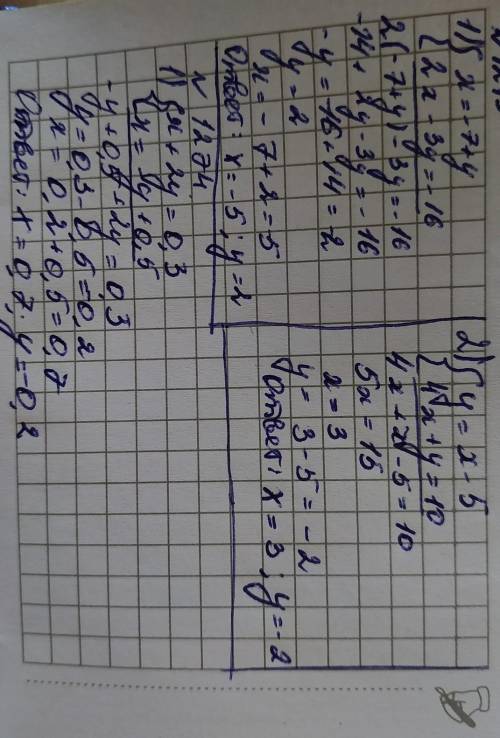 1) { x = -7+y
{ 2x - 3y = -16
2(-7+y) -3y = -16
-14 + 2y - 3y = -16
-y = -16 + 14 = 2
y = 2
x = -7+2 = 5
Ответ: x = -5; y = 2
2) { y = x - 5
{ 4x + y = 10
4x + x - 5 = 10
5x = 15
x = 3
y = 3 - 5 = -2
Ответ: x = 3; y = -2
№ 1274
1) { x + 2y = 0,3
{ x = -y + 0,5
-y + 0,5 + 2y = 0,3
y = 0,3 - 0,5 = 0,2
x = 0,2 + 0,5 = 0,7
Ответ: x = 0,7. y = -0,2